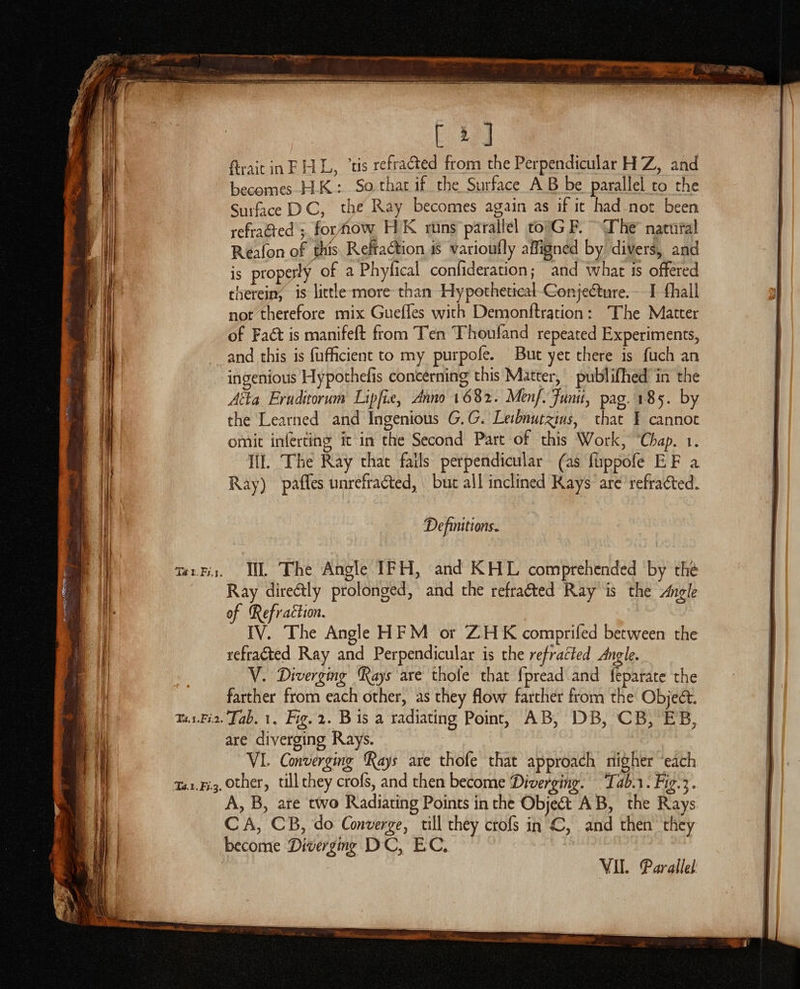 [ 2 ]
ſtrait in F H L, 'tis refracted from the Perpendicular H Z, and
becomes H K: So that if the Surface A B be parallel to the
Surface D C, the Ray becomes again as if it had not been
refracted; for now H K runs parallel to G F. The natural
Reaſon of this Refraction is variouſly aſſigned by divers, and
is properly of a Phyſical conſideration; and what is offered
therein, is little more than Hypothetical Conjecture. I ſhall
not therefore mix Gueſſes with Demonſtration: The Matter
of Fact is manifeſt from Ten Thouſand repeated Experiments,
and this is ſufficient to my purpoſe. But yet there is ſuch an
ingenious Hypotheſis concerning this Matter, publiſhed in the
Acta Eruditorum Lipſiæ, Anno 1682. Menſ. Junii, pag. 185. by
the Learned and Ingenious G. G. Leibnutzius, that I cannot
omit inſerting it in the Second Part of this Work, Chap. 1.
III. The Ray that falls perpendicular (as ſuppoſe E F a
Ray) paſſes unrefracted, but all inclined Rays are refracted.
Definitions.
Ta 1. Fi 1. III. The Angle IFH, and KHL comprehended by the
Ray directly prolonged, and the refracted Ray is the Angle
of Refraction.
IV. The Angle HFM or ZHK compriſed between the
refracted Ray and Perpendicular is the refracted Angle.
V. Diverging Rays are thoſe that ſpread and ſeparate the
farther from each other, as they flow farther from the Object.
Ta. 1. Fi 2. Tab. 1. Fig. 2. B is a radiating Point, AB, DB, CB, EB,
are diverging Rays.
VI. Converging Rays are thoſe that approach nigher each
Ta. 1. Fi 3. other, till they croſs, and then become Diverging. Tab. 1. Fig. 3.
A, B, are two Radiating Points in the Object AB, the Rays
CA, CB, do Converge, till they croſs in C, and then they
become Diverging DC, EC.
VII. Parallel